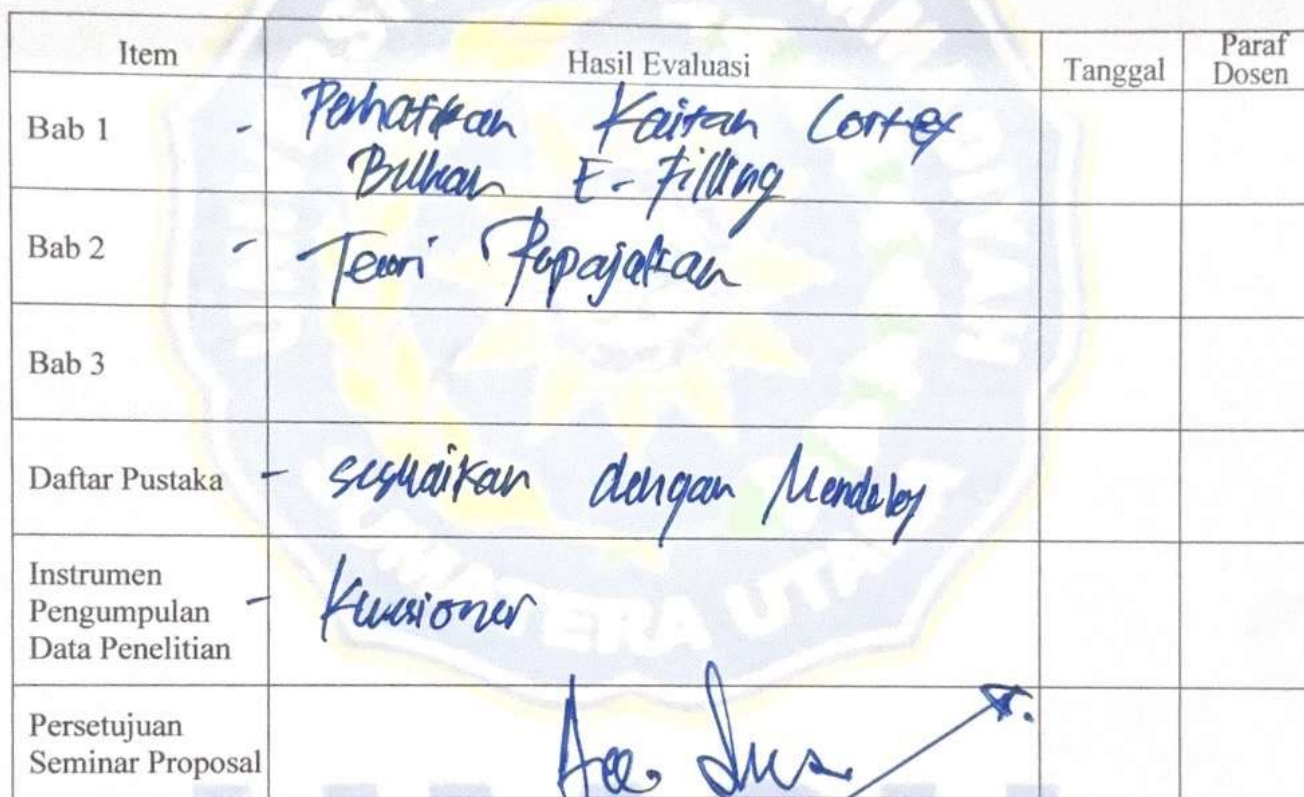 Item Hasil Evaluasi Tanggal Paraf Dosen
Bab 1 - Perhatikan Kaitan Cortex
Bukan E-Filling
Bab 2 - Teori Perpajakan
Bab 3
Daftar Pustaka - sesuaikan dengan Mendeley
Instrumen
Pengumpulan - Kuesioner
Data Penelitian
Persetujuan
Seminar Proposal Acc.
SUMATERA UTARA